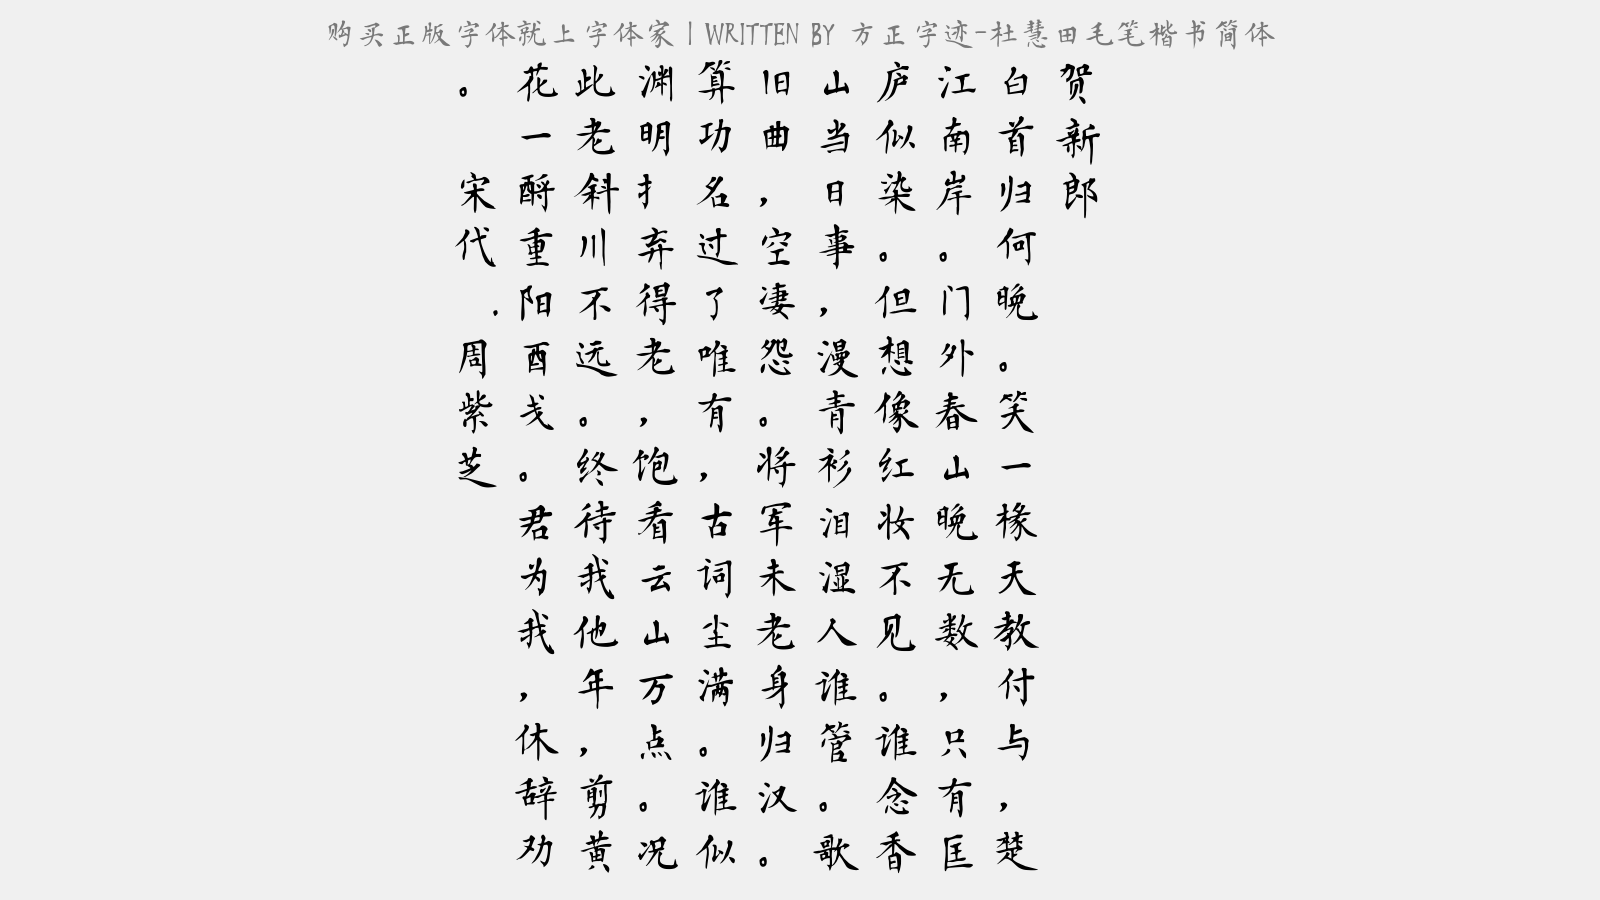 购买正版字体就上字体家 | WRITTEN BY 方正字迹-杜慧田毛笔楷书简体
贺新郎
白首归何晚。笑一椽天教付与，楚
江南岸。门外春山晚无数，只有匡
庐似染。但想像红妆不见。谁念香
山当日事，漫青衫泪湿人谁管。歌
旧曲，空凄怨。将军未老身归汉。
算功名过了唯有，古词尘满。谁似
渊明扌弃得老，饱看云山万点。况
此老斜川不远。终待我他年，剪黄
花一酹重阳酉戋。君为我，休辞劝
。 宋代 .周紫芝